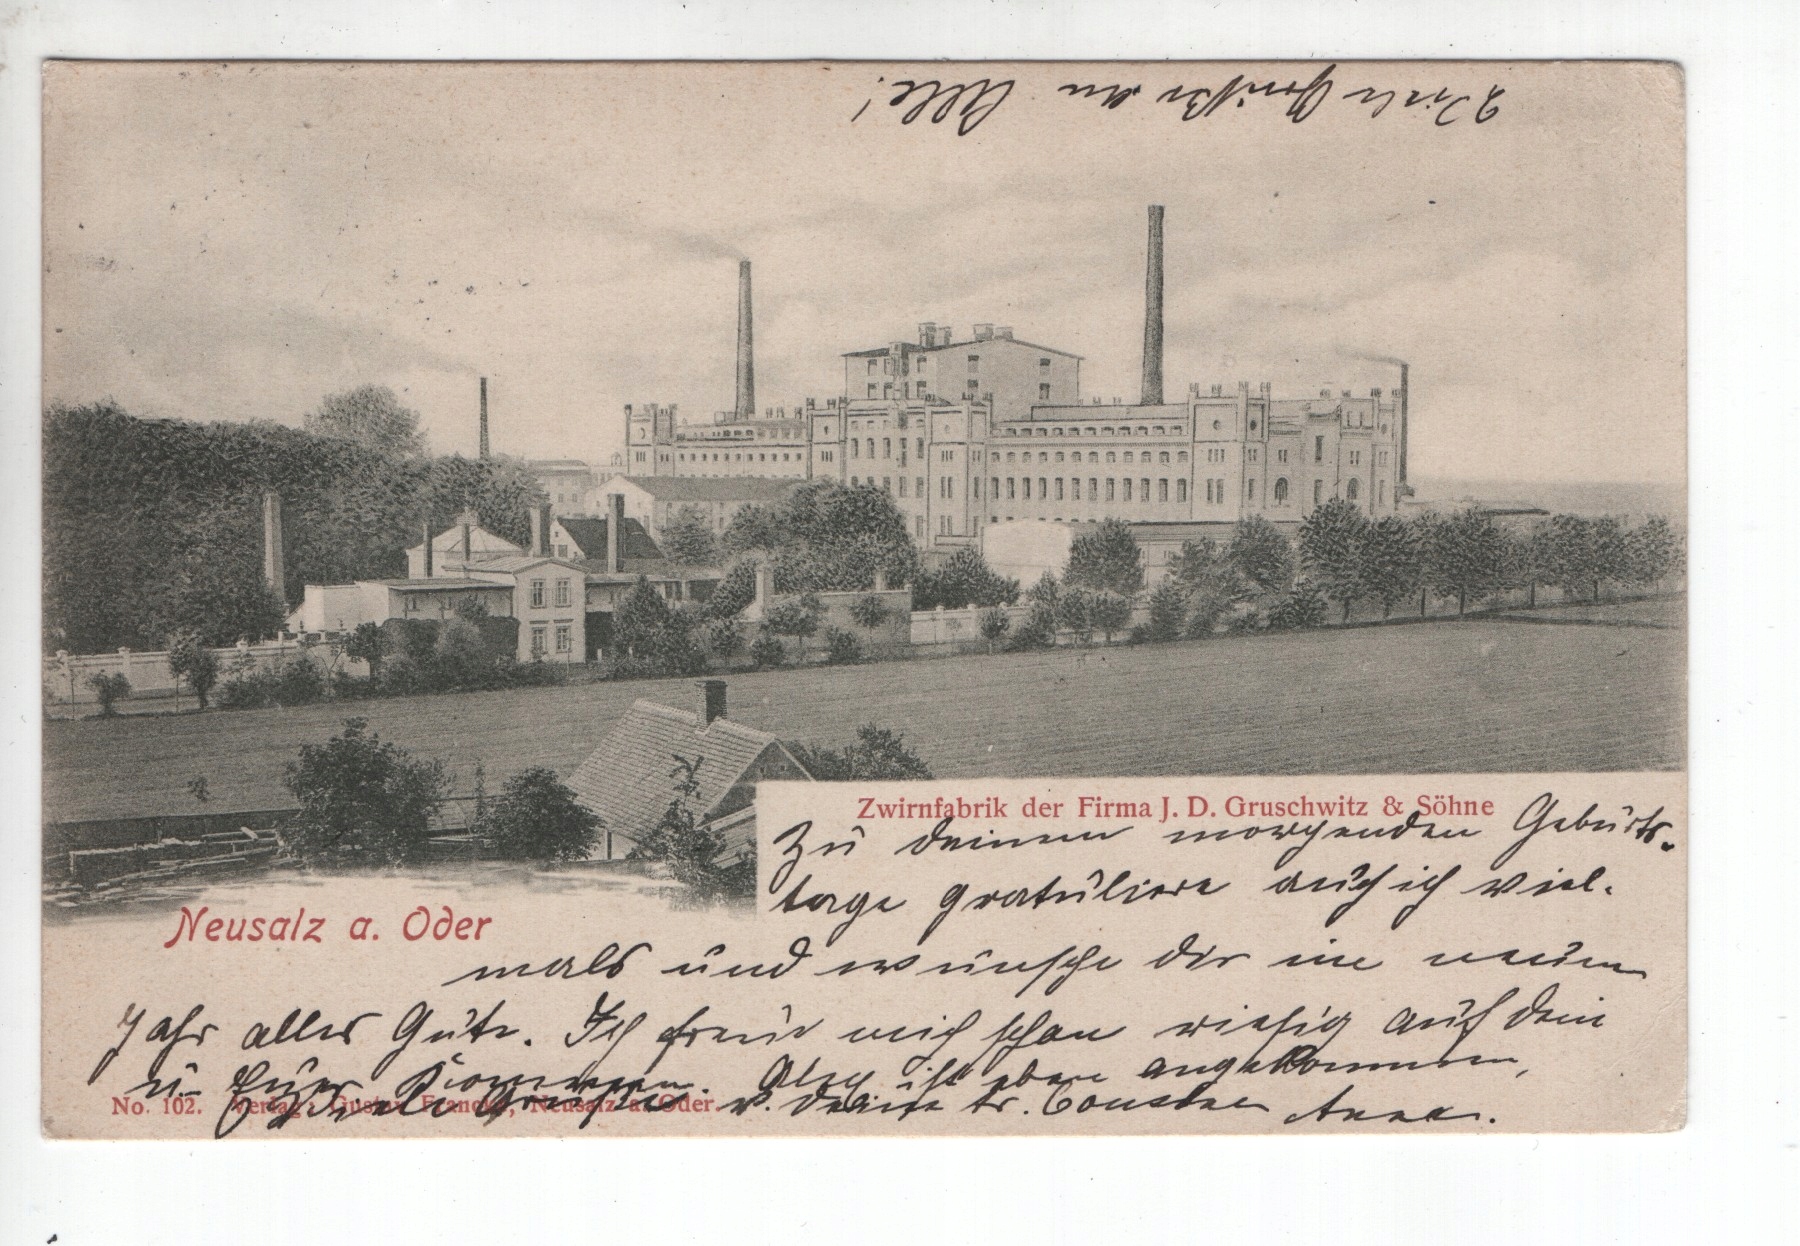 Viele Grüße an Alle!
Zwirnfabrik der Firma J. D. Gruschwitz & Söhne
Neusalz a. Oder
Zu deinem morgenden Geburts-
tage gratuliere auch ich viel-
mals und wünsche dir im neuen
Jahr alles Gute. Ich freue mich schon riesig auf dein
u. Kommen. ist eben angekommen,
Viele Grüße v. deiner tr. Cousine Anna.
No. 102. Verlag: Gustav Francke, Neusalz a. Oder.